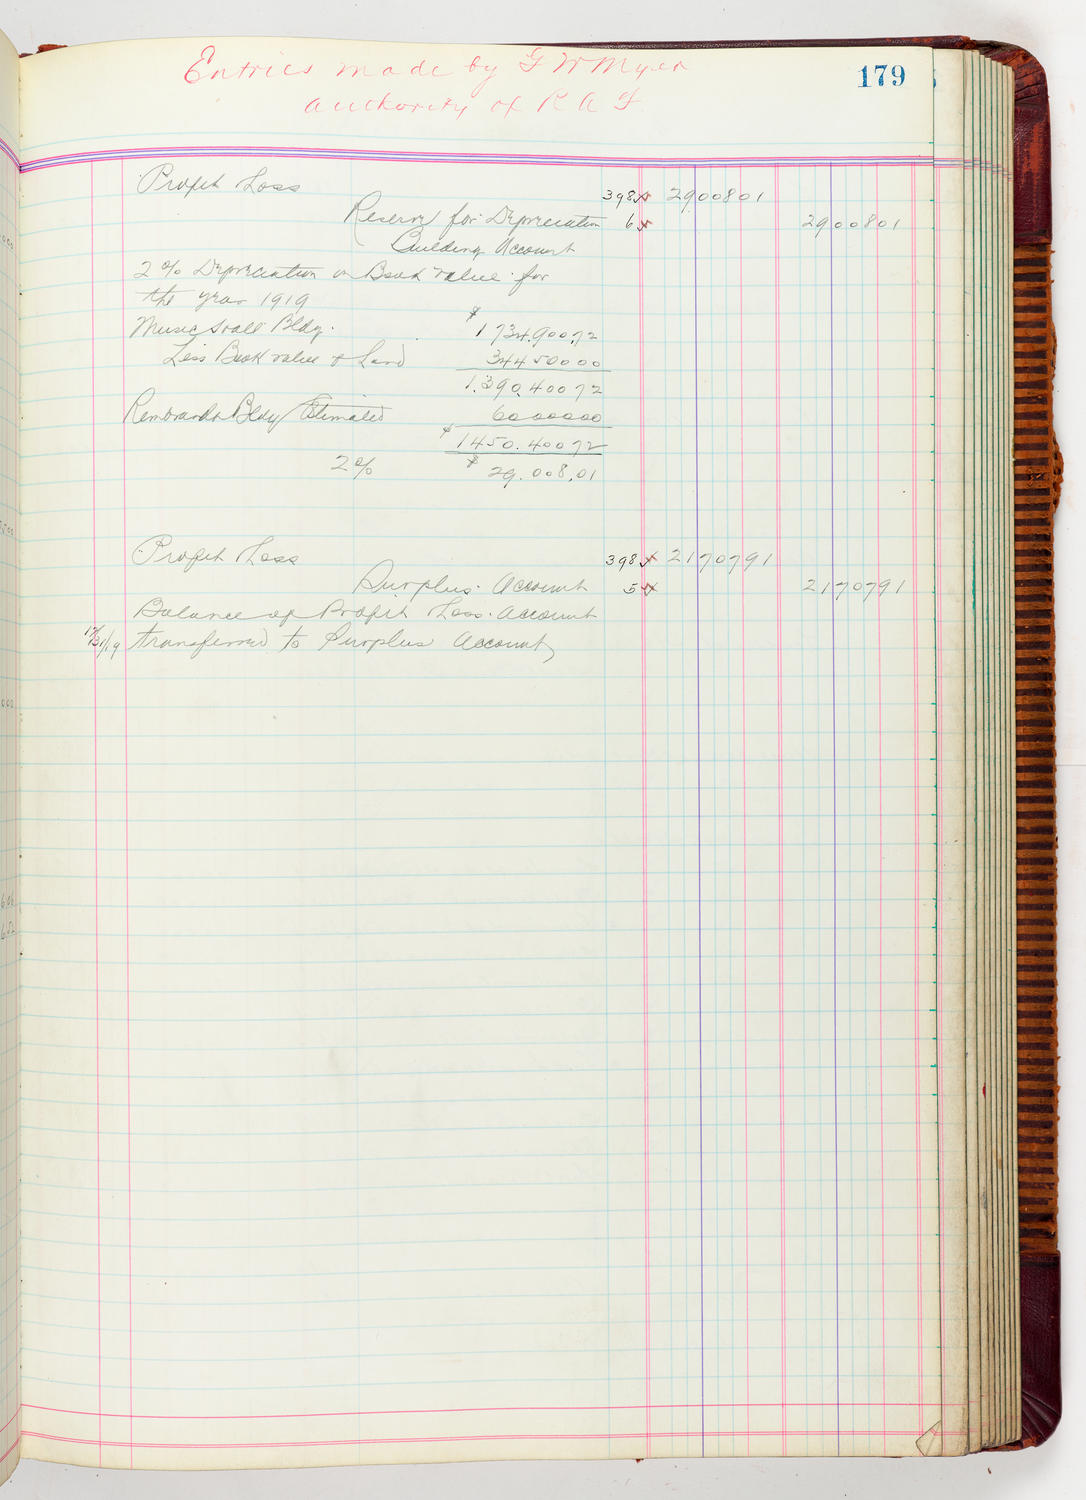 179
Entries made by G W Myer
authority of R A G
Profit Loss 398 29008 01
Reserve for Depreciation 6 29008 01
Building Account
2% Depreciation on Book value for
the year 1919
Music Hall Bldg. $ 1734.900.72
Less Book value of Land 344 500 00
1.390.400 72
Rembrandt Bldg Estimated 60 000 00
$ 1450.400 72
2% $ 29.008.01
Profit Loss 398 21707 91
Surplus Account 5 21707 91
Balance of Profit Loss Account
12/31/19 transferred to Surplus Account